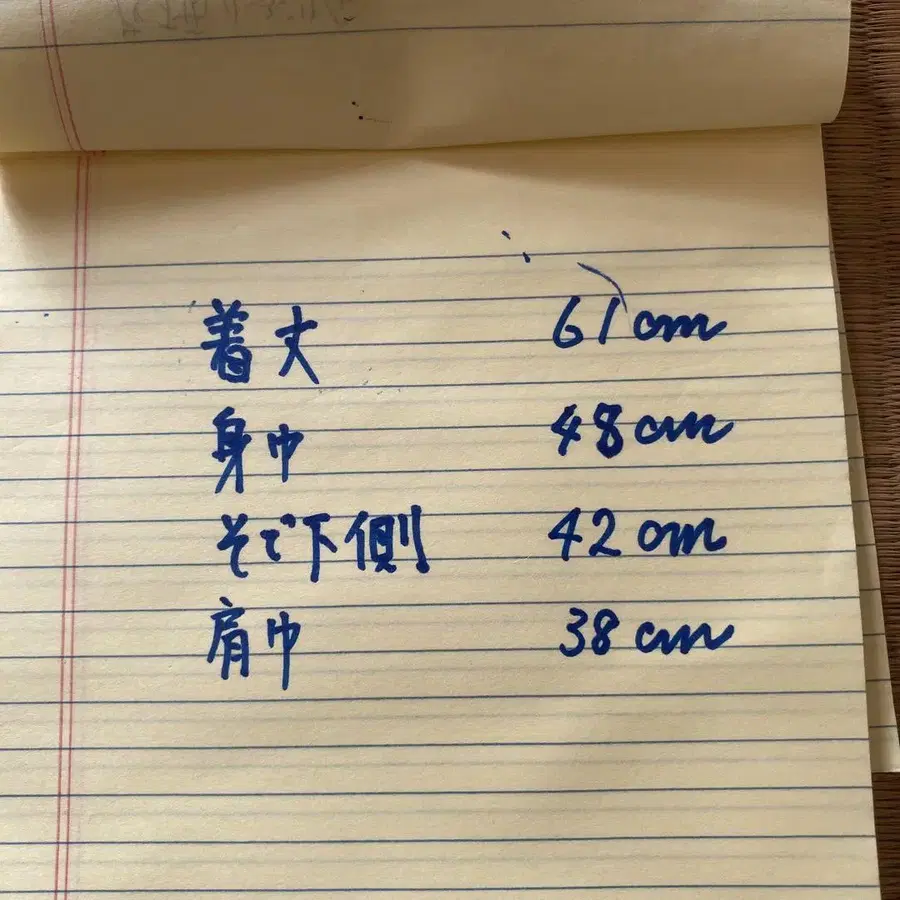 着丈 61cm
身巾 48cm
そで下側 42cm
肩巾 38cm